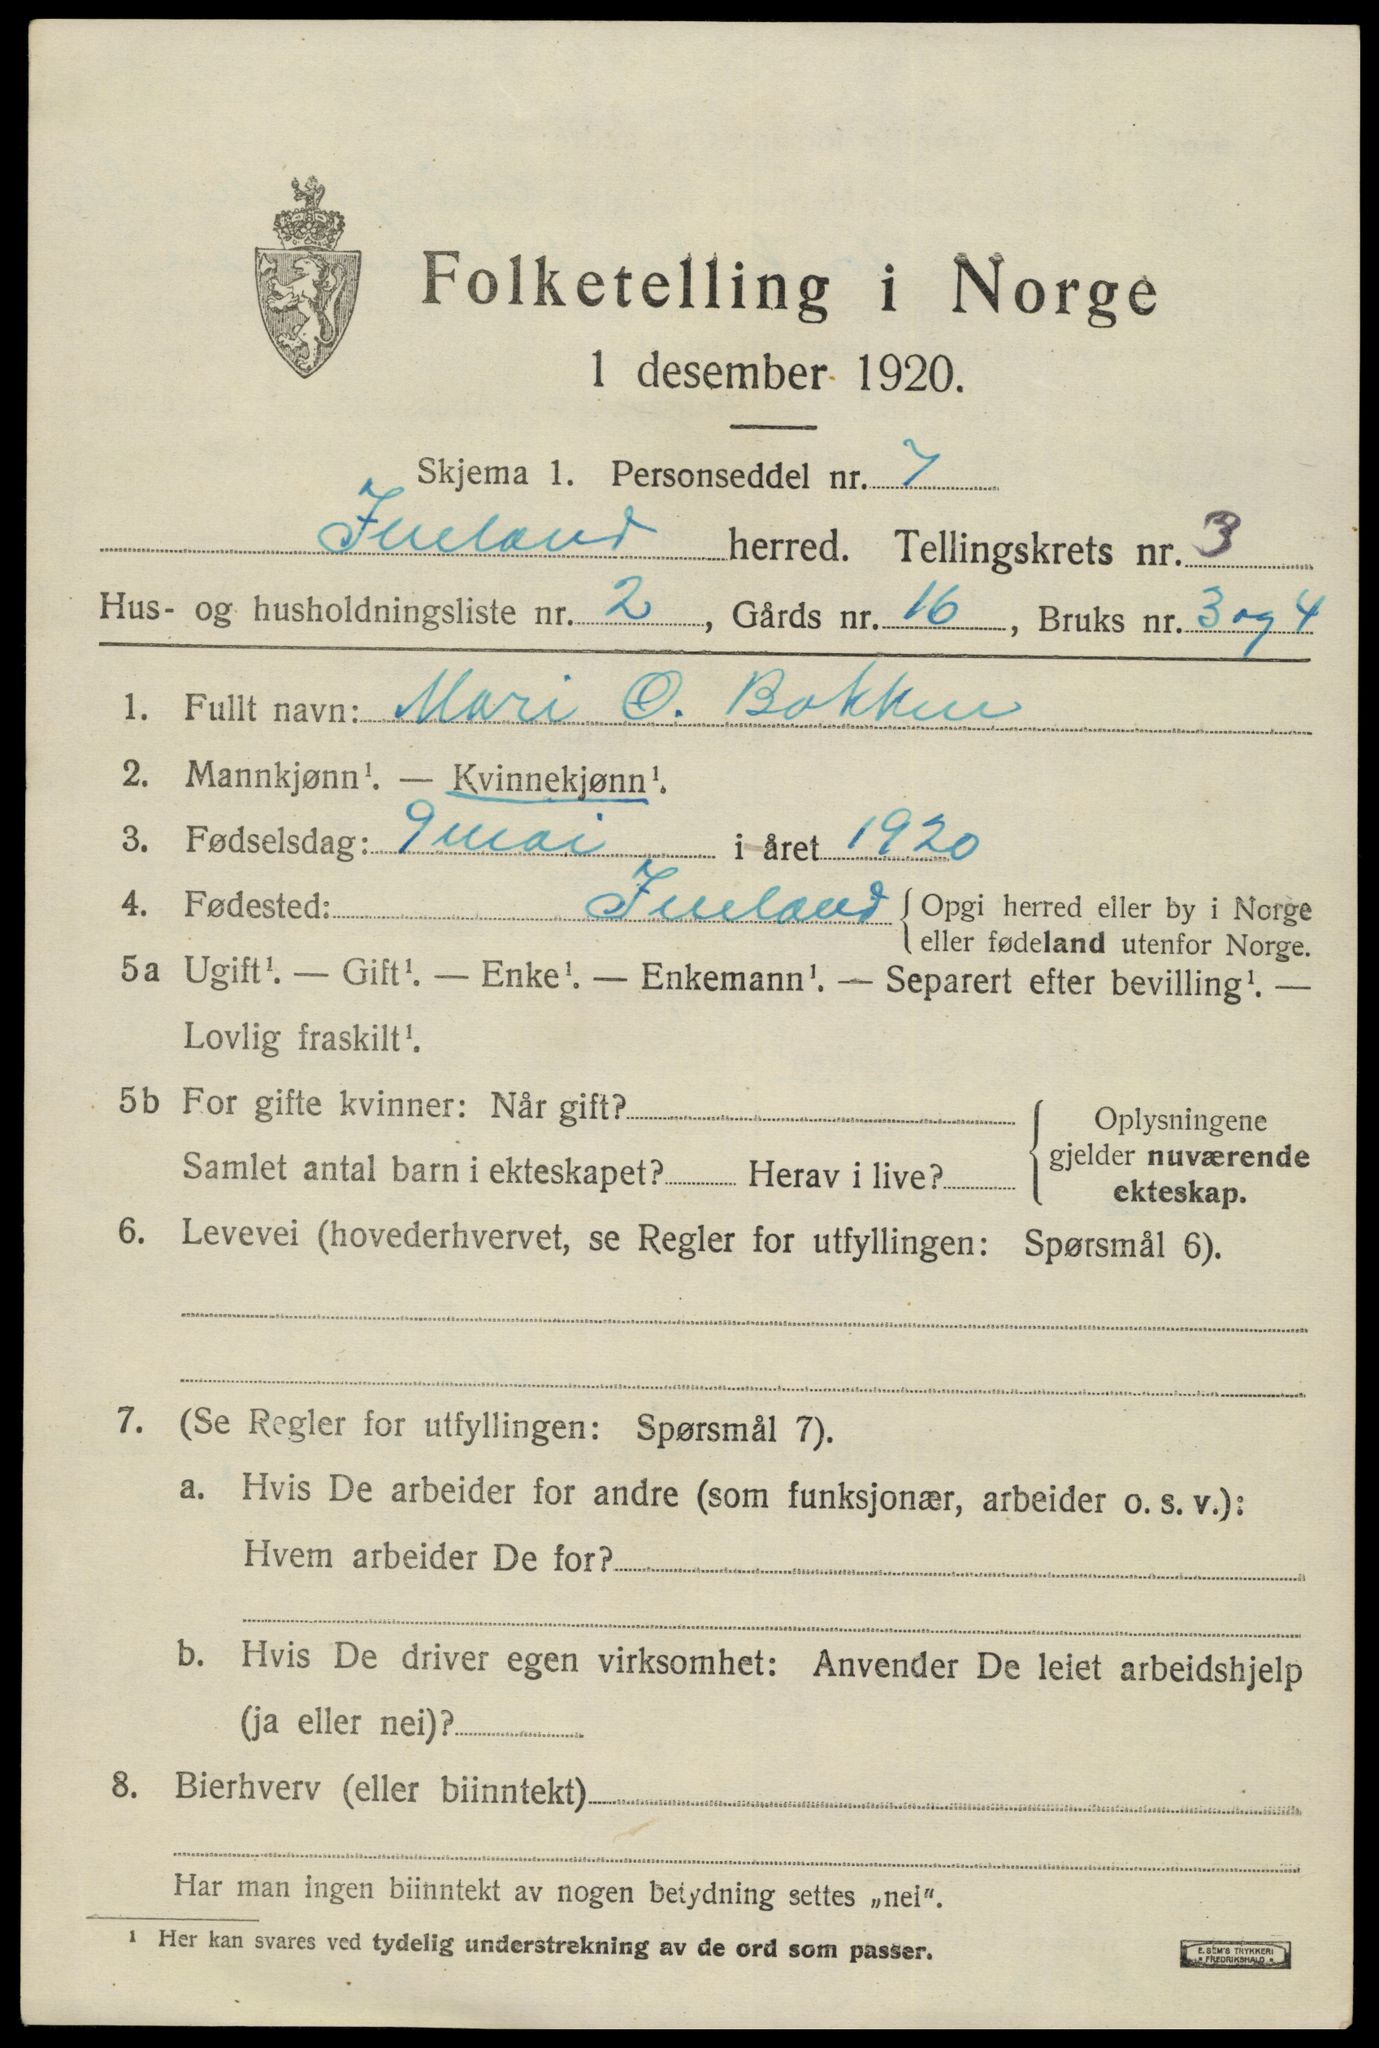 Folketelling i Norge
1 desember 1920.
Skjema 1. Personseddel nr. 7
Iveland herred. Tellingskrets nr. 3
Hus- og husholdningsliste nr. 2, Gårds nr. 16, Bruks nr. 3 og 4
1. Fullt navn: Mari O. Bakken
2. Mannkjønn¹. — Kvinnekjønn¹.
3. Fødselsdag: 9 mai i året 1920
4. Fødested: Iveland { Opgi herred eller by i Norge
eller fødeland utenfor Norge.
5a Ugift¹. — Gift¹. — Enke¹. — Enkemann¹. — Separert efter bevilling¹. —
Lovlig fraskilt¹.
5b For gifte kvinner: Når gift?
Samlet antal barn i ekteskapet? Herav i live?
{ Oplysningene
gjelder nuværende
ekteskap.
6. Levevei (hovederhvervet, se Regler for utfyllingen: Spørsmål 6).
7. (Se Regler for utfyllingen: Spørsmål 7).
a. Hvis De arbeider for andre (som funksjonær, arbeider o. s. v.):
Hvem arbeider De for?
b. Hvis De driver egen virksomhet: Anvender De leiet arbeidshjelp
(ja eller nei)?
8. Bierhverv (eller biinntekt)
Har man ingen biinntekt av nogen betydning settes „nei".
¹ Her kan svares ved tydelig understrekning av de ord som passer.
E. SEM'S TRYKKERI
• FREDRIKSHALD •